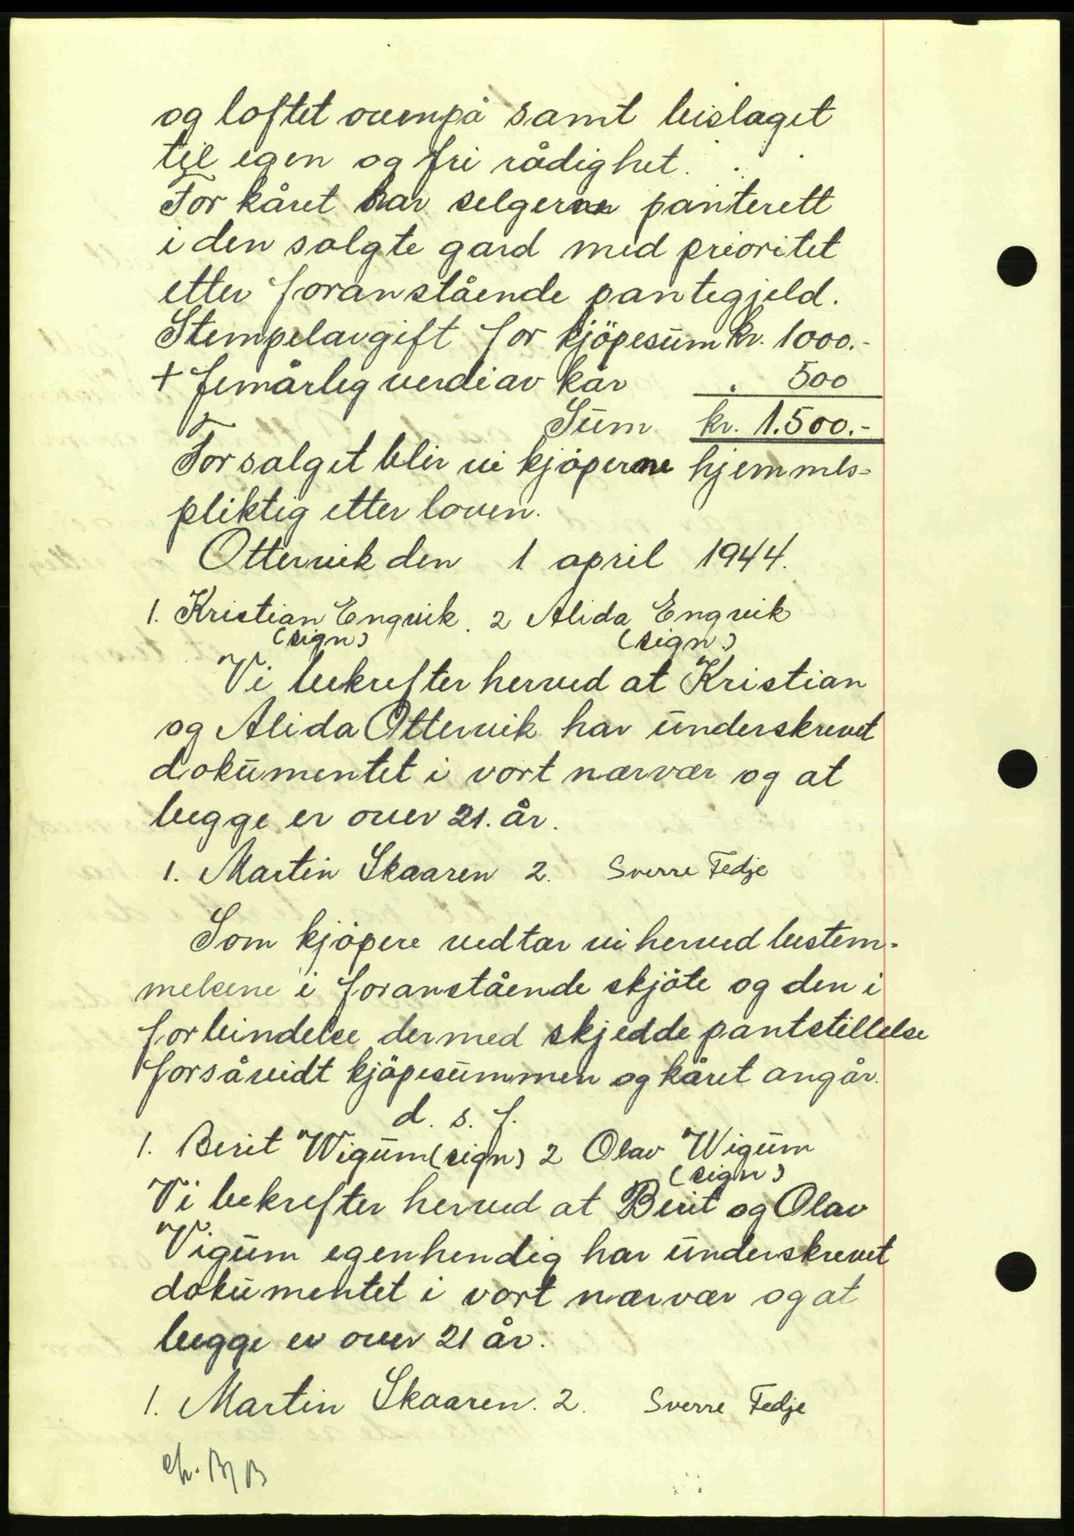 og loftet ovenpå samt bislaget
til egen og fri rådighet.
For kåret har selgerne panterett
i den solgte gard med prioritet
etter foranstående pantegjeld.
Stempelavgift for kjöpesum kr. 1000.-
+ femårlig verdi av kår " 500
Sum kr. 1.500.-
For salget blir vi kjöperne hjemmels-
pliktig etter loven.
Ottervik den 1 april 1944.
1. Kristian Engvik. 2 Alida Engvik
(sign) (sign)
Vi bekrefter herved at Kristian
og Alida Ottervik har underskrevet
dokumentet i vort nærvær og at
begge er over 21. år.
1. Martin Skaaren 2. Sverre Fedje
Som kjöpere vedtar vi herved bestem-
melsene i foranstående skjöte og den i
forbindelse dermed skjedde pantstillelse
forsåvidt kjöpesummen og kåret angår.
d. s. f.
1. Berit Wigum (sign) 2 Olav Wigum
(sign)
Vi bekrefter herved at Berit og Olav
Vigum egenhendig har underskrevet
dokumentet i vort nærvær og at
begge er over 21 år.
1. Martin Skaaren. 2. Sverre Fedje